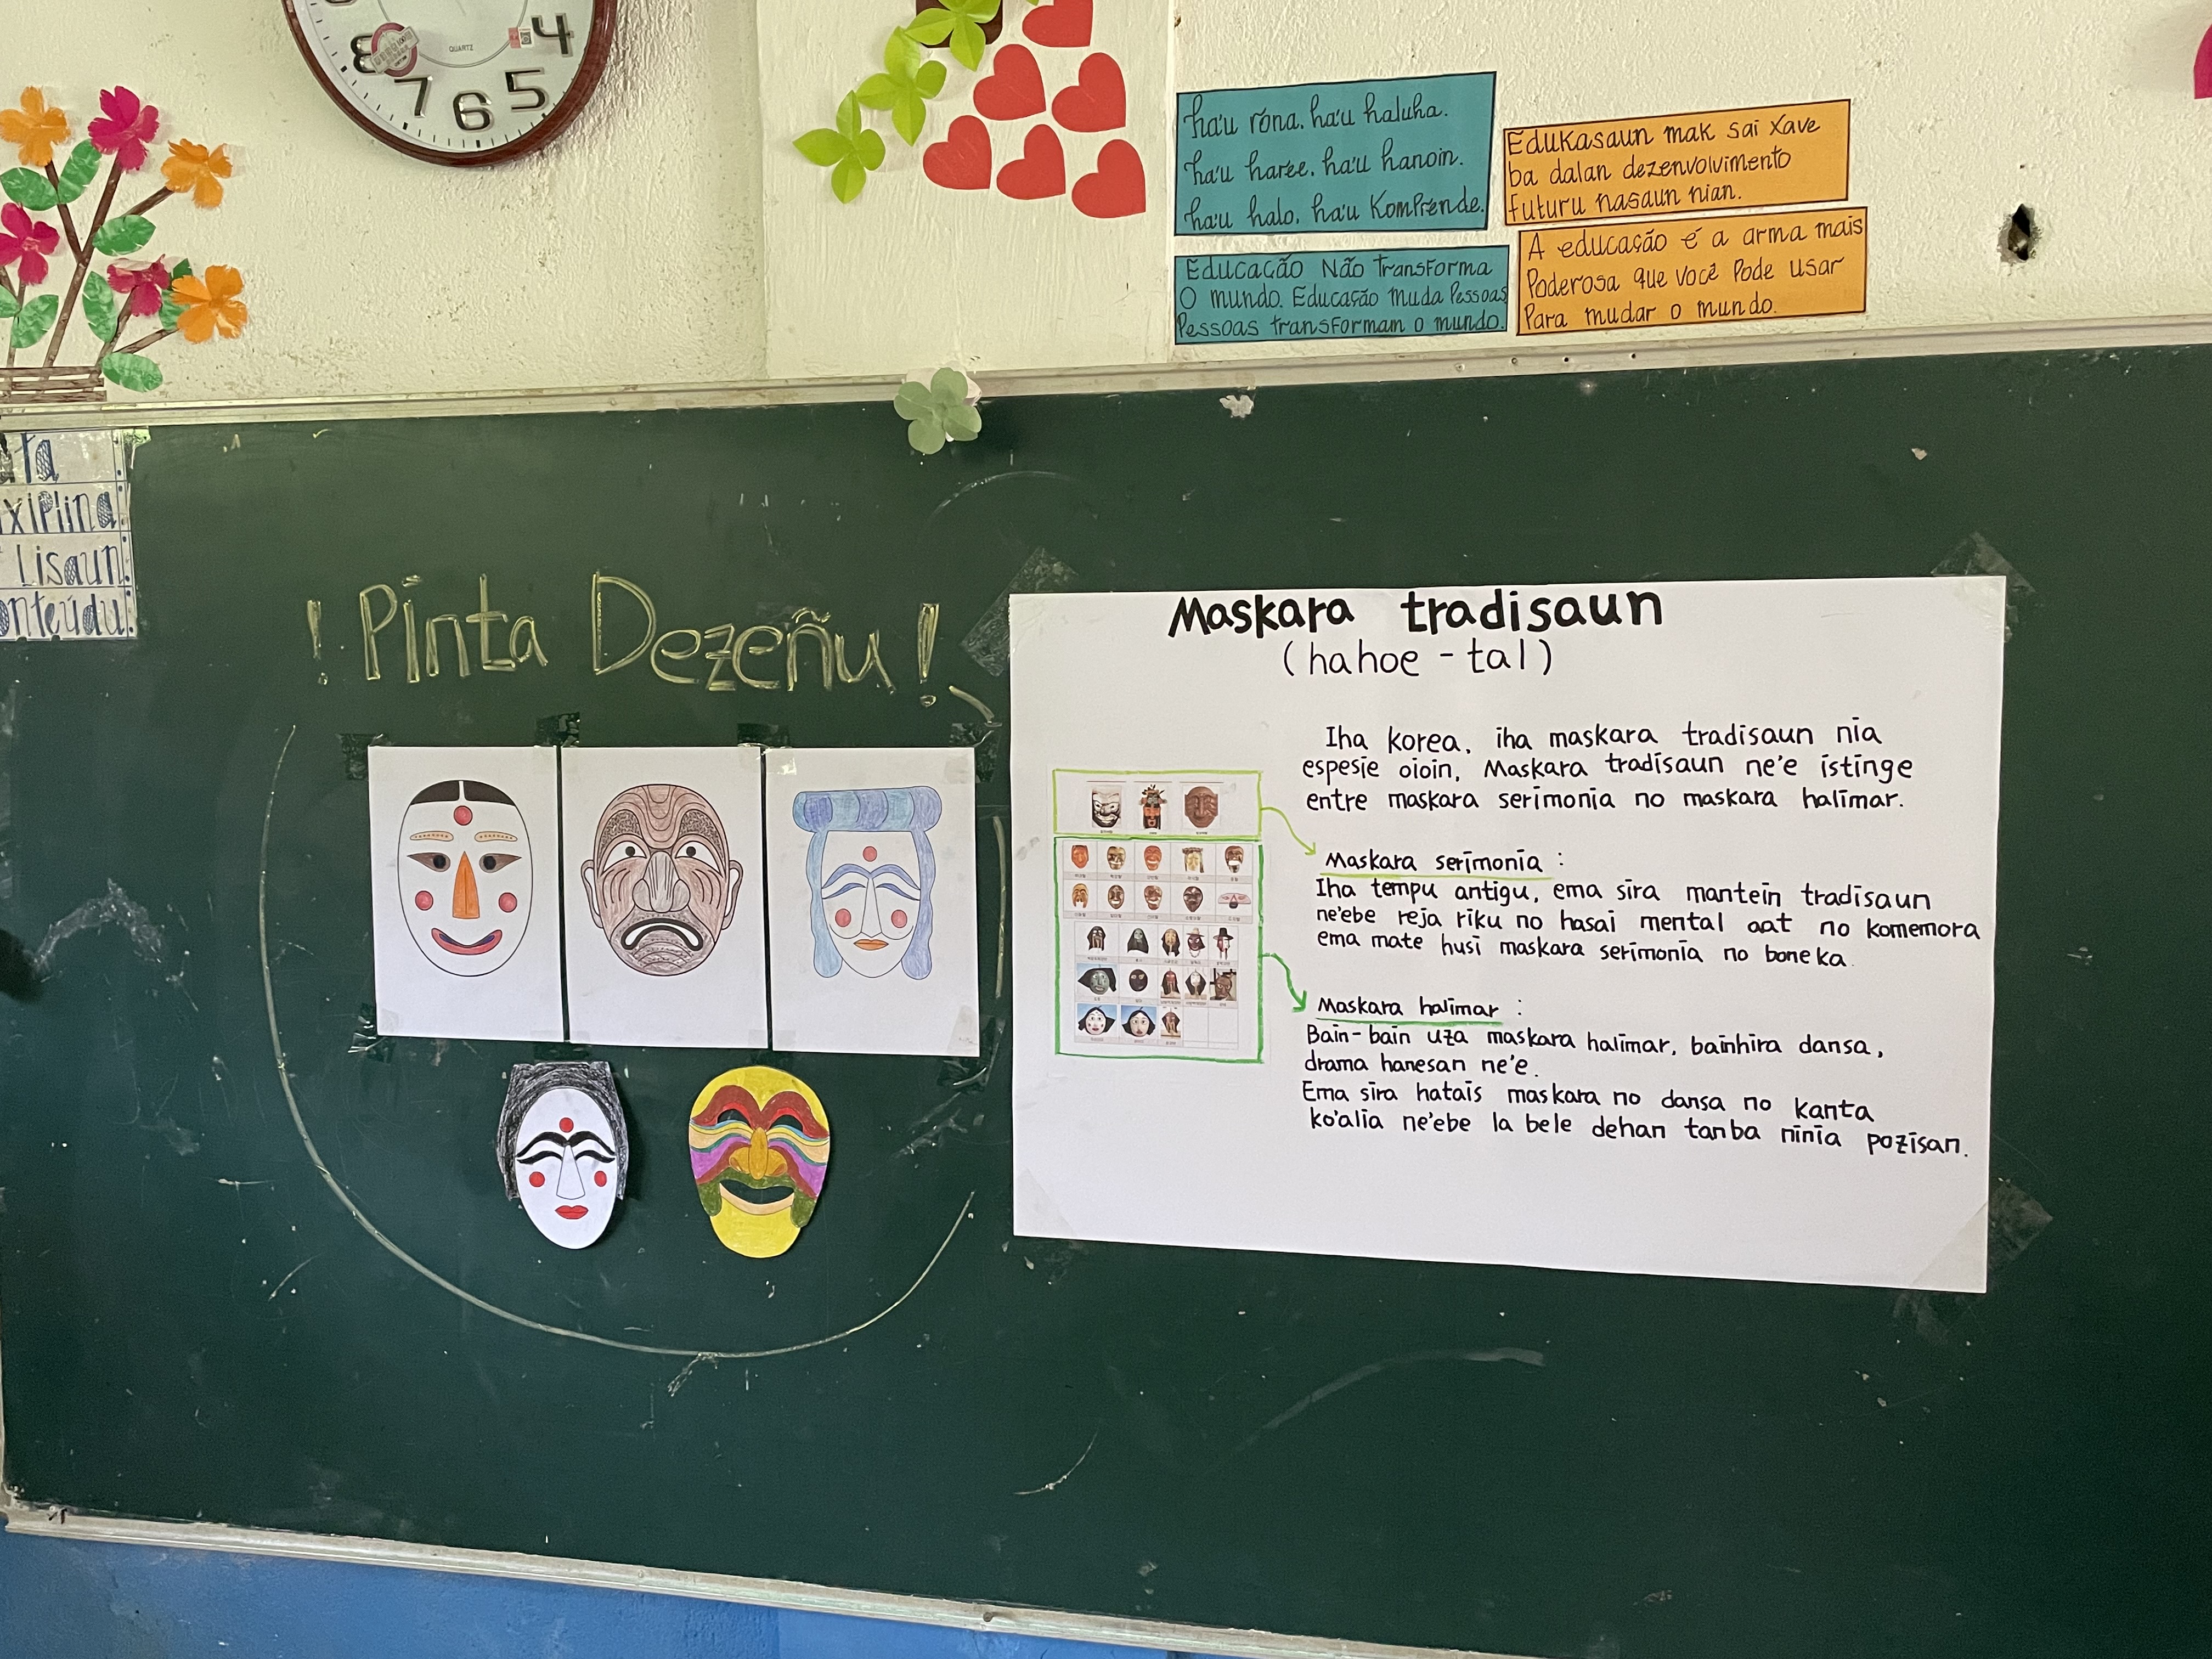 QUARTZ
4
5
6
7
8
ha'u rona, ha'u haluha.
ha'u haree, ha'u hanoin.
ha'u halo, ha'u Komprende.
Edukasaun mak sai xave
ba dalan dezenvolvimento
futuru nasaun nian.
Educação Não Transforma
O mundo. Educação muda Pessoas
Pessoas transformam o mundo.
A educação é a arma mais
Poderosa que você Pode usar
Para mudar o mundo.
Lisaun:
! Pinta Dezeñu !
Maskara tradisaun
(hahoe - tal)
Iha korea, iha maskara tradisaun nia
espesie oioin, Maskara tradisaun ne'e istinge
entre maskara serimonia no maskara halimar.
Maskara serimonia :
Iha tempu antigu, ema sira mantein tradisaun
ne'ebe reja riku no hasai mental aat no komemora
ema mate husi maskara serimonia no boneka.
Maskara halimar :
Bain-bain uza maskara halimar, bainhira dansa,
drama hanesan ne'e.
Ema sira hatais maskara no dansa no kanta
ko'alia ne'ebe la bele dehan tanba ninia pozisan.